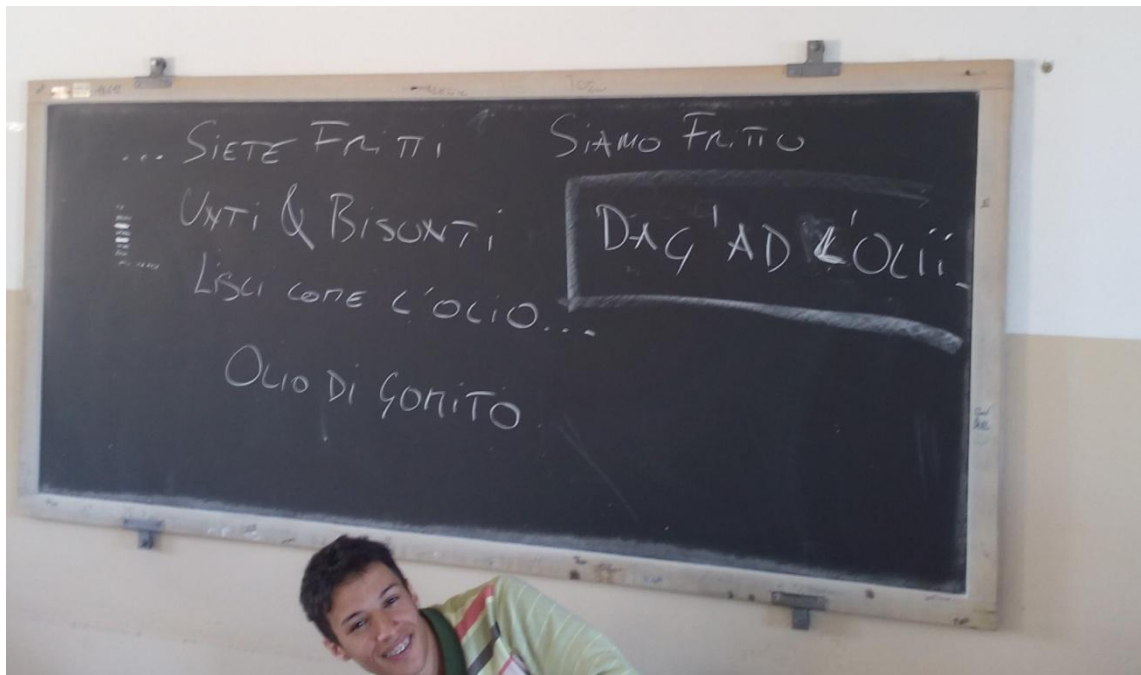 ... SIETE FRITTI
UNTI & BISUNTI
LISCI COME L'OLIO...
OLIO DI GOMITO
SIAMO FRITTO
DAG'AD L'OLII